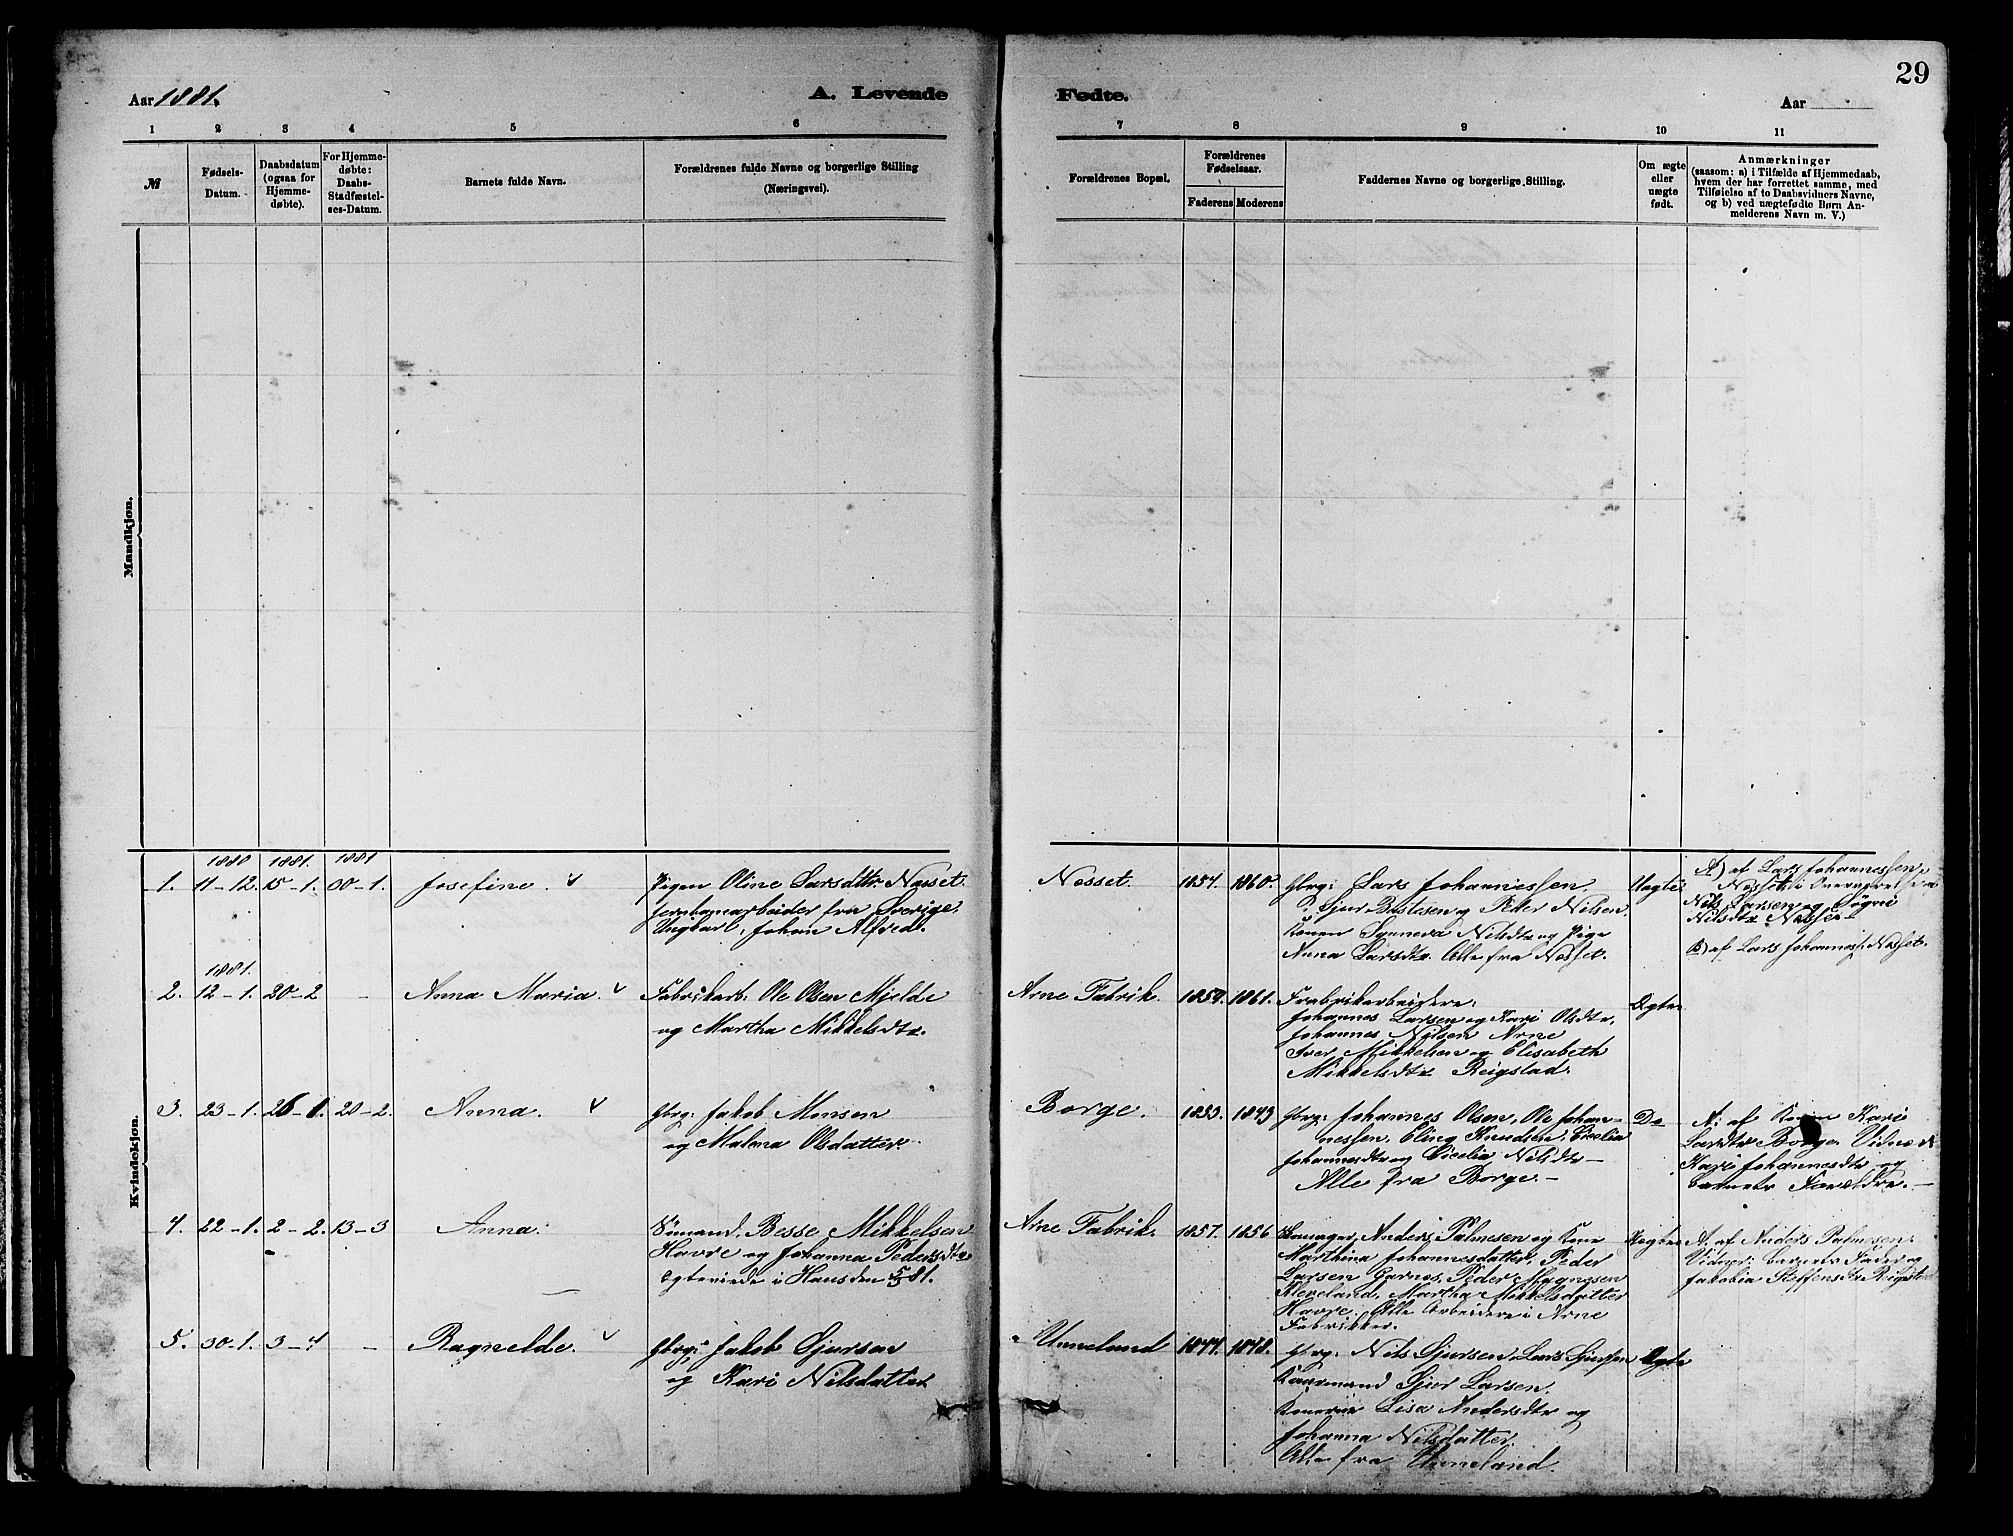 29
Aar 1881.
A. Levende
Fødte.
Aar
1 2 3 4 5 6
7 8 9 10 11
№
Fødsels-
Datum.
Daabsdatum
(ogsaa for
Hjemme-
døbte).
For Hjemme-
døbte:
Daabs-
Stadfæstel-
ses-Datum.
Barnets fulde Navn.
Forældrenes fulde Navne og borgerlige Stilling
(Næringsvei).
Forældrenes Bopæl.
Forældrenes
Fødselsaar.
Faderens
Moderens
Faddernes Navne og borgerlige Stilling.
Om ægte
eller
uægte
født.
Anmærkninger
(saasom: a) i Tilfælde af Hjemmedaab,
hvem der har forrettet samme, med
Tilføielse af to Daabsvidners Navne,
og b) ved uægtefødte Børn An-
melderens Navn m. V.)
Mandkjøn.
Kvindekjøn.
1880 1881. 1881
1. 11-12. 15-1. 30-1. Josefine.
Pigen Oline Larsdttr. Nosset.
Jernbanearbeider fra Sverige,
Ungkarl, Johan Alfred.
Nosset. 1857. 1860.
Gbrg: Lars Johannessen.
Sjur Bertesen og Peter Nilsen.
Konen Synneva Nilsdtr og Pige
Anna Larsdtr. Alle fra Nosset.
Uægte
A) af Lars Johannessen,
Nosset i Overværelse a
Nils Larsen og Søgni
Nilsdtr Nosset.
B) af Lars Johanness. Nosset.
1881.
2. 12-1. 20-2 - Anna Maria.
Fabrikarb: Ole Olsen Mjelde
og Martha Mikkelsdtr.
Arne Fabrik. 1859. 1861.
Frabrikarbeidere:
Johannes Larsen og Kari Olsdtr,
Johannes Nilsen Arne
Iver Mikkelsen og Elisabeth
Mikkelsdtr Reigstad.
Ægte
3. 23-1. 26-1. 20-2. Anna.
Gbrg: Jakob Monsen
og Malena Olsdatter.
Borge. 1853. 1843
Gbrg: Johannes Olsen, Ole Johan-
nessen, Eling Knudsen, Cicelia
Johannesdtr og Cicelia Nilsdtr -
Alle fra Borge. -
Do
A: af Konen Kari
Larsdtr Borge. Vidne
Kari Johannesdtr og
barnets Forældre. -
4. 22-1. 2-2. 13-3 Anna.
Sømand. Besse Mikkelsen
Havre og Johanna Pedersdtr
Egteviede i Haus den 5/81.
Arne Fabrik. 1857. 1856
Anders Palmesen og Kone
Marthina Johannesdatter, Peder
Larsen Garnes, Peder Magnesen
Kleveland, Martha Mikkelsdatter
Havre. Alle Arbeidere i Arne
Fabrikker.
Uægte
A. af Anders Palmesen.
Vidner: barnets Fader og
Jakobia Steffensdtr Reigstad
5. 30-1. 3-4 - Ragnelde.
Gbrg: Jakob Sjursen
og Kari Nilsdatter
Unneland 1844. 1848.
Gbrg: Nils Sjursen, Lars Sjursen
Kaarmand Sjur Larsen.
Konerne Lisa Andersdtr og
Johanna Nilsdatter
Alle fra Unneland.
Ægte